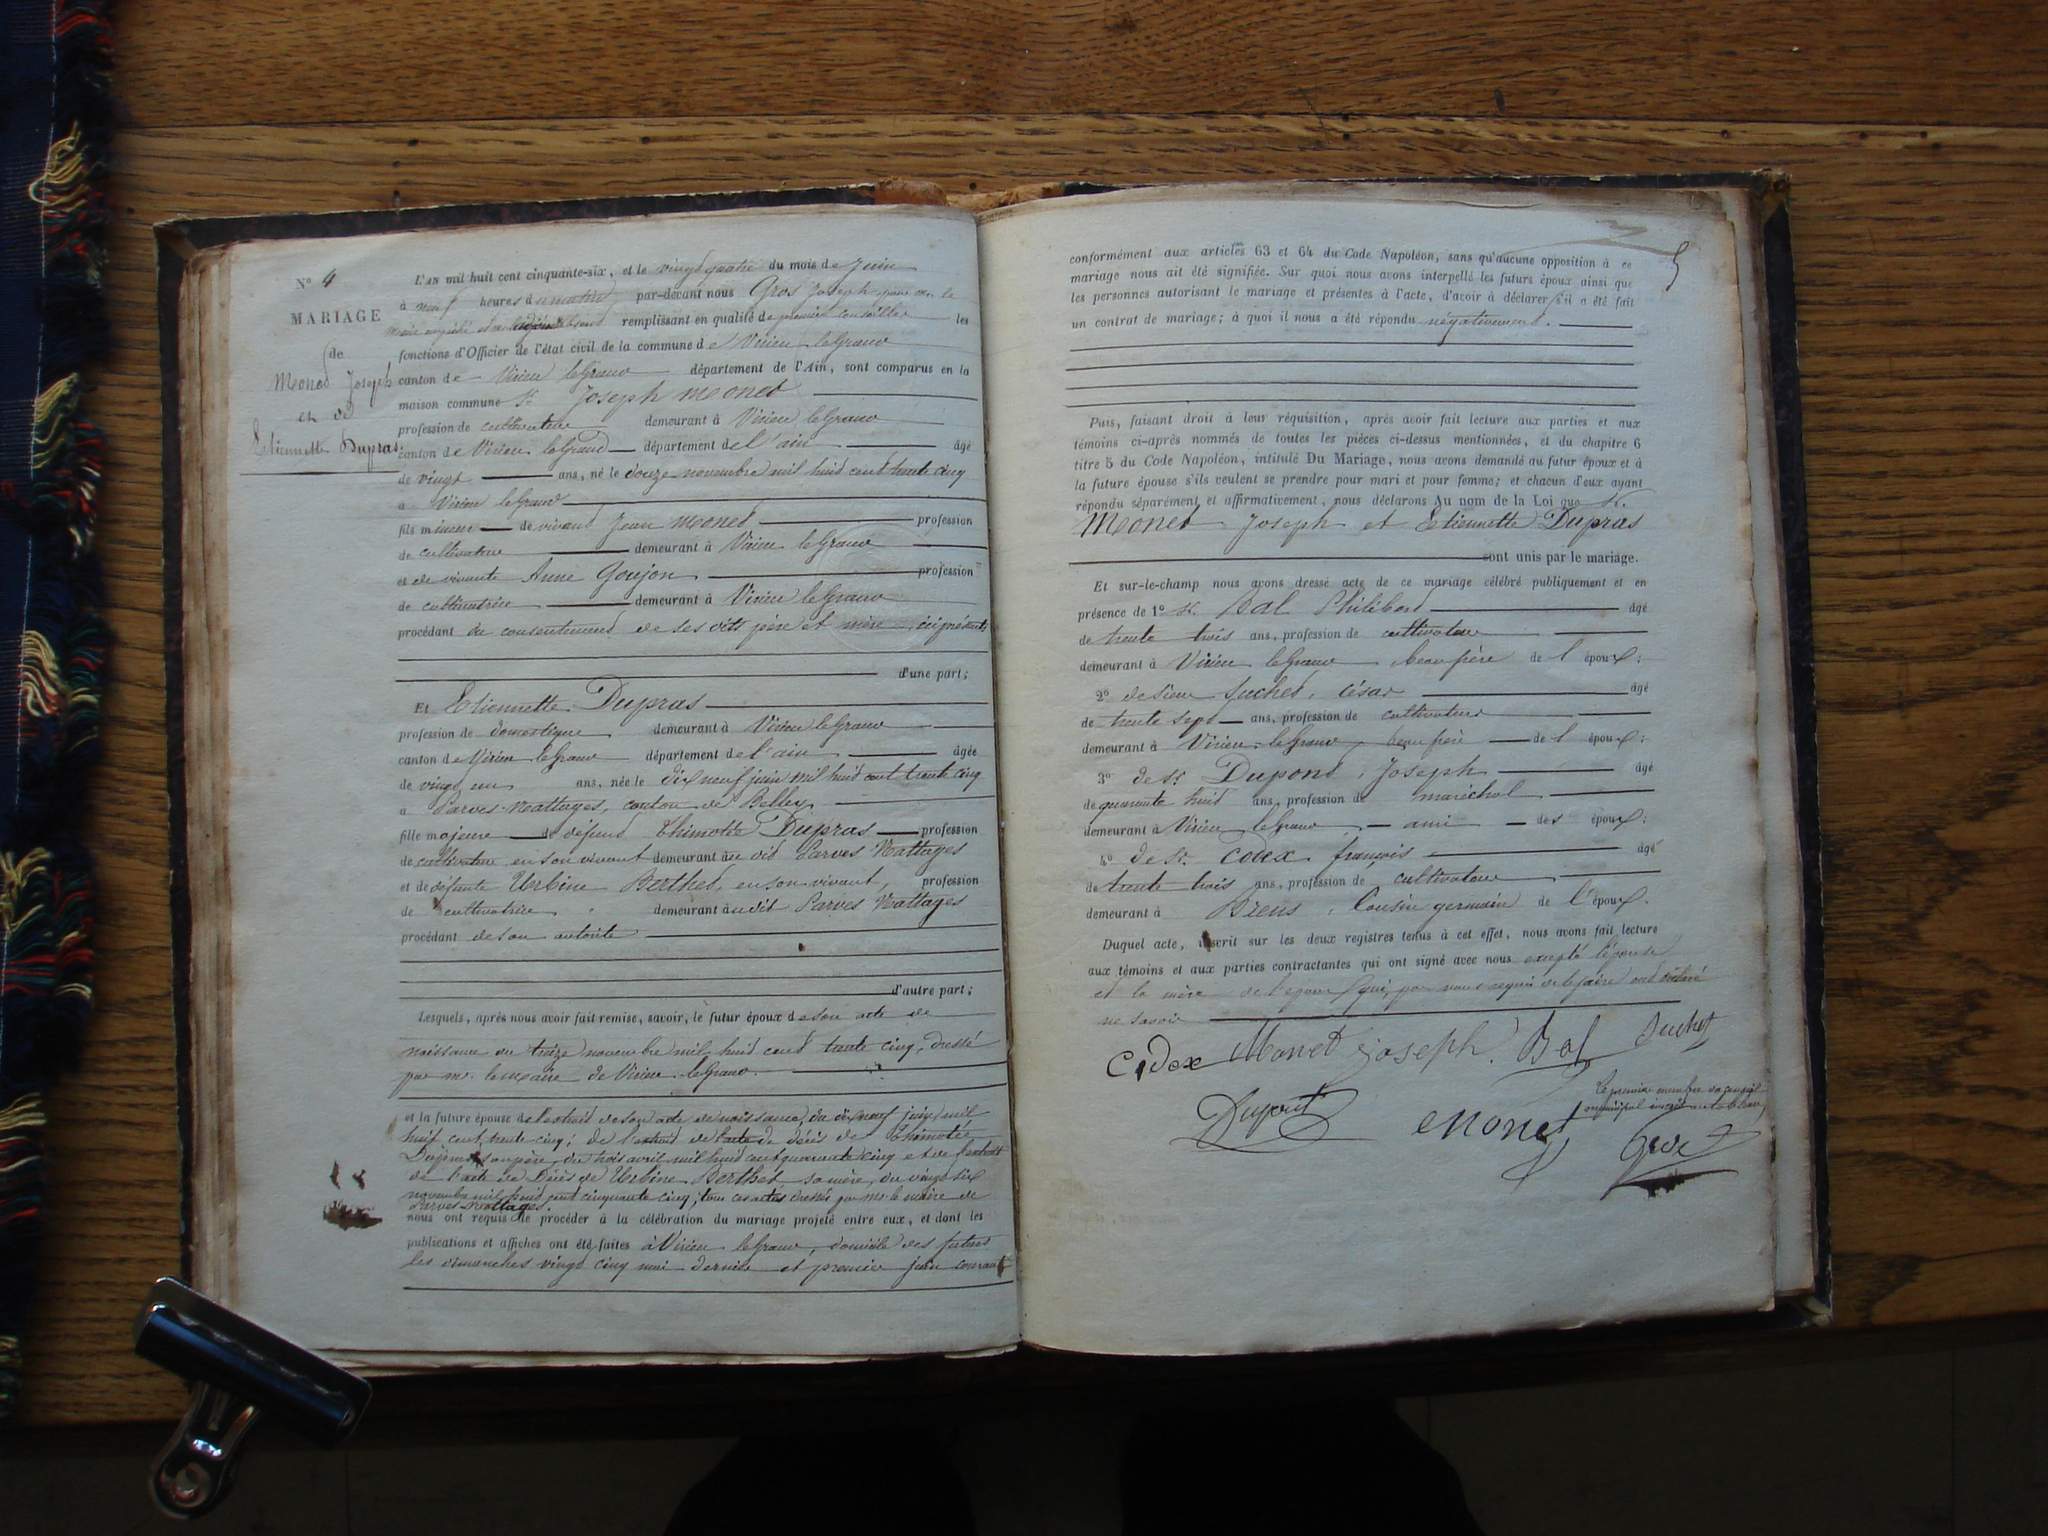 N° 4
MARIAGE
de
Monet Joseph
et de
Etiennette Dupras
L'AN mil huit cent cinquante-six, et le vingt quatre du mois de Juin
à neuf heures du matin, par-devant nous Gros Joseph pour mr. le
maire empêché et remplissant en qualité de premier conseiller les
fonctions d'Officier de l'état civil de la commune de Virieu leGrand
canton de Virieu leGrand département de l'Ain, sont comparus en la
maison commune Sr. Joseph Monet
profession de cultivateur demeurant à Virieu leGrand
canton de Virieu leGrand département de l'ain âgé
de vingt ans, né le douze novembre mil huit cent trente cinq
a Virieu leGrand
fils mineur de vivant Jean Monet profession
de cultivateur demeurant à Virieu leGrand
et de vivante Anne Goujon profession
de cultivatrice demeurant à Virieu leGrand
procédant du consentement de ses dits père et mère ici présents
d'une part;
Et Etiennette Dupras
profession de domestique demeurant à Virieu leGrand
canton de Virieu leGrand département de l'ain âgée
de vingt un ans, née le dix neuf juin mil huit cent trente cinq
a Parves-Nattages, canton de Belley
fille majeure de défunt Thimotée Dupras profession
de cultivateur en son vivant demeurant au dit Parves Nattages
et de défunte Urbine Berthet, en son vivant, profession
de cultivatrice demeurant audit Parves Nattages
procédant de son autorité
d'autre part;
Lesquels, après nous avoir fait remise, savoir, le futur époux de son acte de
naissance du treize novembre mil huit cent trente cinq, dressé
par mr. le maire de Virieu leGrand.
et la future épouse de l'extrait de son acte de naissance, du dix neuf juin mil
huit cent trente cinq; de l'extrait de l'acte de décès de Thimotée
Dupras son père, du trois avril mil huit cent quarante cinq et de l'extrait
de l'acte de Décès de Urbine Berthet sa mère, du vingt six
novembre mil huit cent cinquante cinq; tous ces actes dressés par mr. le maire de
Parves-Nattages.
nous ont requis de procéder à la célébration du mariage projeté entre eux, et dont les
publications et affiches ont été faites à Virieu leGrand, domicile des futurs
les dimanches vingt cinq mai dernier et premier juin courant
5
conformément aux articles 63 et 64 du Code Napoléon, sans qu'aucune opposition à ce
mariage nous ait été signifiée. Sur quoi nous avons interpellé les futurs époux ainsi que
les personnes autorisant le mariage et présentes à l'acte, d'avoir à déclarer s'il a été fait
un contrat de mariage; à quoi il nous a été répondu négativement.
Puis, faisant droit à leur réquisition, après avoir fait lecture aux parties et aux
témoins ci-après nommés de toutes les pièces ci-dessus mentionnées, et du chapitre 6
titre 5 du Code Napoléon, intitulé Du Mariage, nous avons demandé au futur époux et à
la future épouse s'ils veulent se prendre pour mari et pour femme; et chacun d'eux ayant
répondu séparément et affirmativement, nous déclarons Au nom de la Loi que Sr.
Monet Joseph et Etiennette Dupras
sont unis par le mariage.
Et sur-le-champ nous avons dressé acte de ce mariage célébré publiquement et en
présence de 1° Sr. Bal Philibert âgé
de trente trois ans, profession de cultivateur
demeurant à Virieu leGrand beau frère de l'époux;
2° de sieur Suchet, César âgé
de trente sept ans, profession de cultivateur
demeurant à Virieu-leGrand, beau frère de l'époux;
3° de Sr. Dupont, Joseph âgé
de quarante huit ans, profession de maréchal
demeurant à Virieu leGrand ami des époux;
4° de Sr. Codex françois âgé
de trente trois ans, profession de cultivateur
demeurant à Brens, Cousin germain de l'époux.
Duquel acte, inscrit sur les deux registres tenus à cet effet, nous avons fait lecture
aux témoins et aux parties contractantes qui ont signé avec nous excepté l'épouse
et la mère de l'époux qui, par nous requis de le faire ont déclaré
ne savoir
Codex Monet joseph Bal Suchet
le premier membre du conseil
municipal inscrit au tableau
Dupont Monet Gros